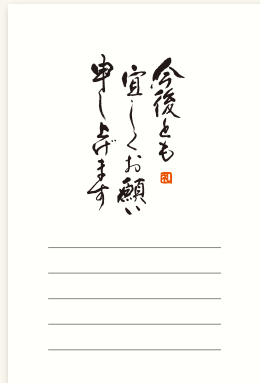 今後とも
宜しくお願い
申し上げます
礼